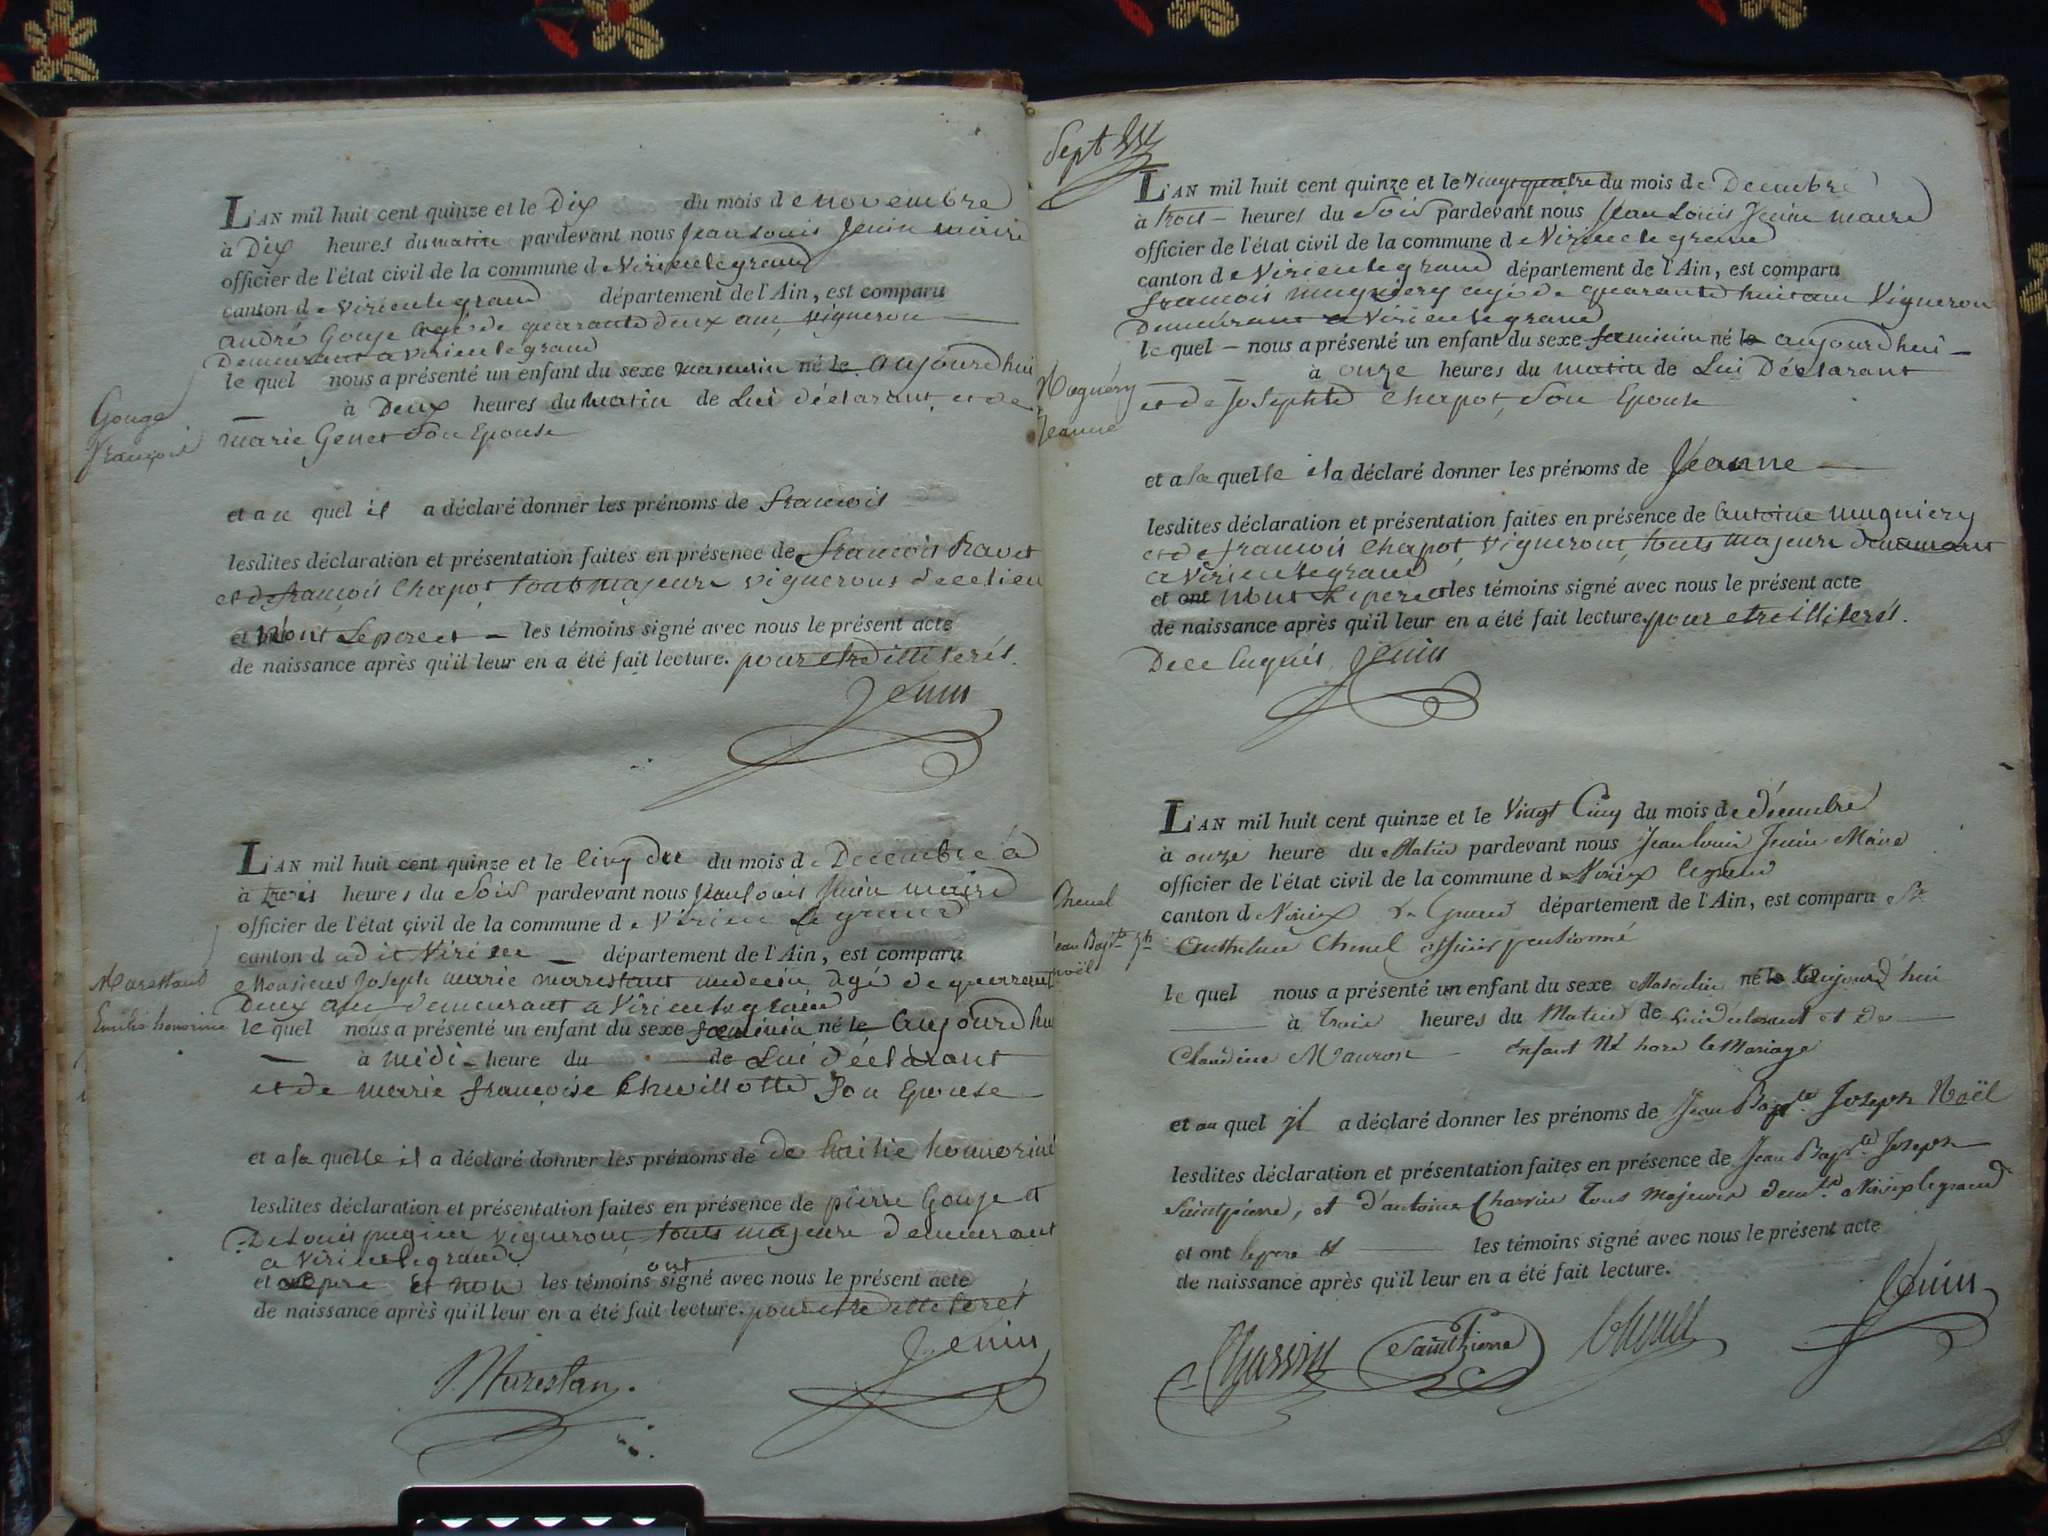 L'AN mil huit cent quinze et le Dix du mois de novembre
à Dix heures du matin pardevant nous Jean Louis Jenin maire
officier de l'état civil de la commune de Virieulegrand
canton de Virieulegrand département de l'Ain, est comparu
andré Gouje agé de quarante deux ans, vigneron
Demeurant a virieulegrand
le quel nous a présenté un enfant du sexe masculin né le aujourdhui
à Deux heures du matin de Lui déclarant et de
Gouge
François
marie Genet son Epouse
et au quel il a déclaré donner les prénoms de francois
lesdites déclaration et présentation faites en présence de francois Ravet
et de françois Chapot touts majeurs vignerons de ce lieu
et n'ont Le pere et les témoins signé avec nous le présent acte
de naissance après qu'il leur en a été fait lecture. pour etre illiterés.
Jenin
L'AN mil huit cent quinze et le Cinq du mois de Decembre à
à trois heures du Soir pardevant nous Jean Louis Jenin maire
officier de l'état civil de la commune de Virieu Le grand
canton dudit Virieu département de l'Ain, est comparu
Monsieur Joseph marie marestant medecin, agé de quarante
Deux ans demeurant a Virieulegrand
Marestand
Emilie honorine
le quel nous a présenté un enfant du sexe féminin né le Aujourdhui
à midi heure du de Lui déclarant
et de marie françoise Chevillotte son Epouse
et a la quelle il a déclaré donner les prénoms de de honnorine
lesdites déclaration et présentation faites en présence de pierre Gouje et
De Louis pugieu vignerons, touts majeurs demeurant
a Virieulegrand
et le pere et non les témoins ont signé avec nous le présent acte
de naissance après qu'il leur en a été fait lecture. pour etre illiterés
Marestan.
Jenin
Sept
L'AN mil huit cent quinze et le vingt quatre du mois de Decembre
à trois heures du Soir pardevant nous Jean Louis Jenin maire
officier de l'état civil de la commune de Virieulegrand
canton de Virieulegrand département de l'Ain, est comparu
francois mugniery agé de quarante huit ans Vigneron
Demeurant a Virieulegrand
le quel nous a présenté un enfant du sexe feminin né le aujourdhui
à onze heures du matin de Lui Déclarant
Mugniéry
Jeanne
et de Josephte Chapot, son Epouse
et a la quelle il a déclaré donner les prénoms de Jeanne
lesdites déclaration et présentation faites en présence de Antoine mugniery
et de francois Chapot, vignerons, touts majeurs demeurant
a Virieulegrand
et ont n'ont Le pere et les témoins signé avec nous le présent acte
de naissance après qu'il leur en a été fait lecture. pour etre illiterés.
De ce Enquis Jenin
L'AN mil huit cent quinze et le Vingt Cinq du mois de décembre
à onze heure du Matin pardevant nous Jean louis Jenin Maire
officier de l'état civil de la commune de Virieux le grand
canton de Virieux Le Grand département de l'Ain, est comparu Sr
Chenel officier pentionné
Chenel
Jean Bapte Jh
noël
le quel nous a présenté un enfant du sexe Masculin né le aujourd'hui
à Trois heures du Matin de lui declarant et de
Claudine Mauron enfant né hors le Mariage
et au quel jl a déclaré donner les prénoms de Jean Bapte Joseph Noël
lesdites déclaration et présentation faites en présence de Jean Bapte Joseph
Saintpierre, et d'antoine Charvin tous majeurs demts a Virieux le grand
et ont le pere et les témoins signé avec nous le présent acte
de naissance après qu'il leur en a été fait lecture.
Charvin SaintPierre Chenel Jenin